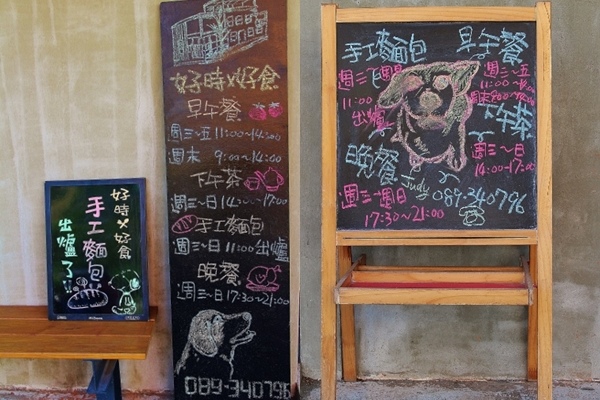 好時乂好食
手工麵包
出爐了
好時乂好食
早午餐
週三~五 11:00~14:00
週末 9:00~14:00
下午茶
週三~日 14:00~17:00
手工麵包
週三~日 11:00出爐
晚餐
週三~日 17:30~21:00
089-340796
手工麵包
週三~週日
11:00
出爐
早午餐
週三~五
11:00~14:00
下午茶
週三~日
14:00~17:00
晚餐
Judy
089-340796
週三~週日
17:30~21:00